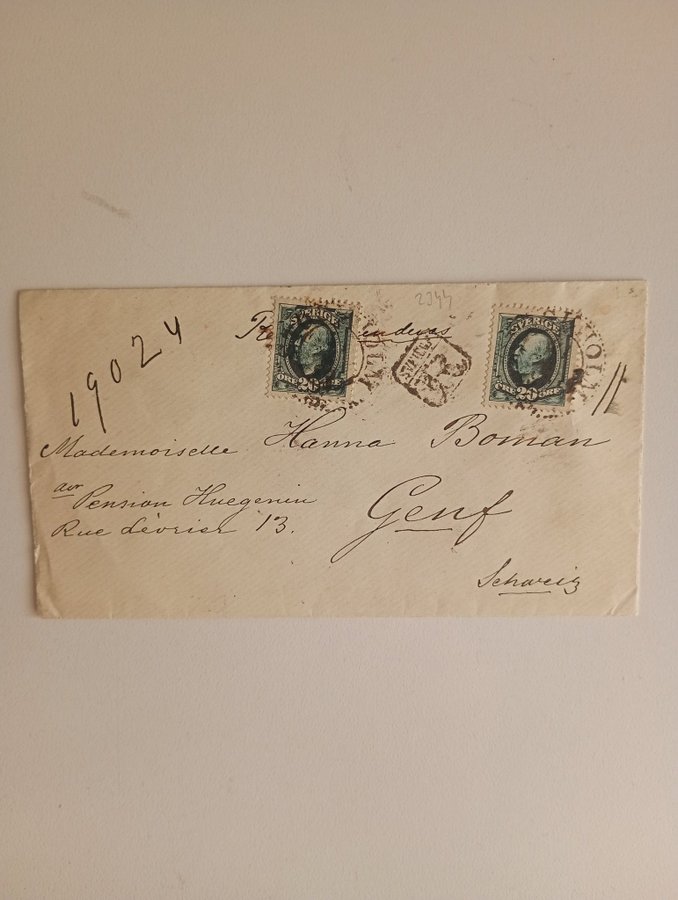 2344
SVERIGE
20 ÖRE
SVERIGE
ÖRE 20 ÖRE
19024
Mademoiselle Hanna Boman
Pension Huegenin
Genf
Rue Lévrier 13.
Schweiz